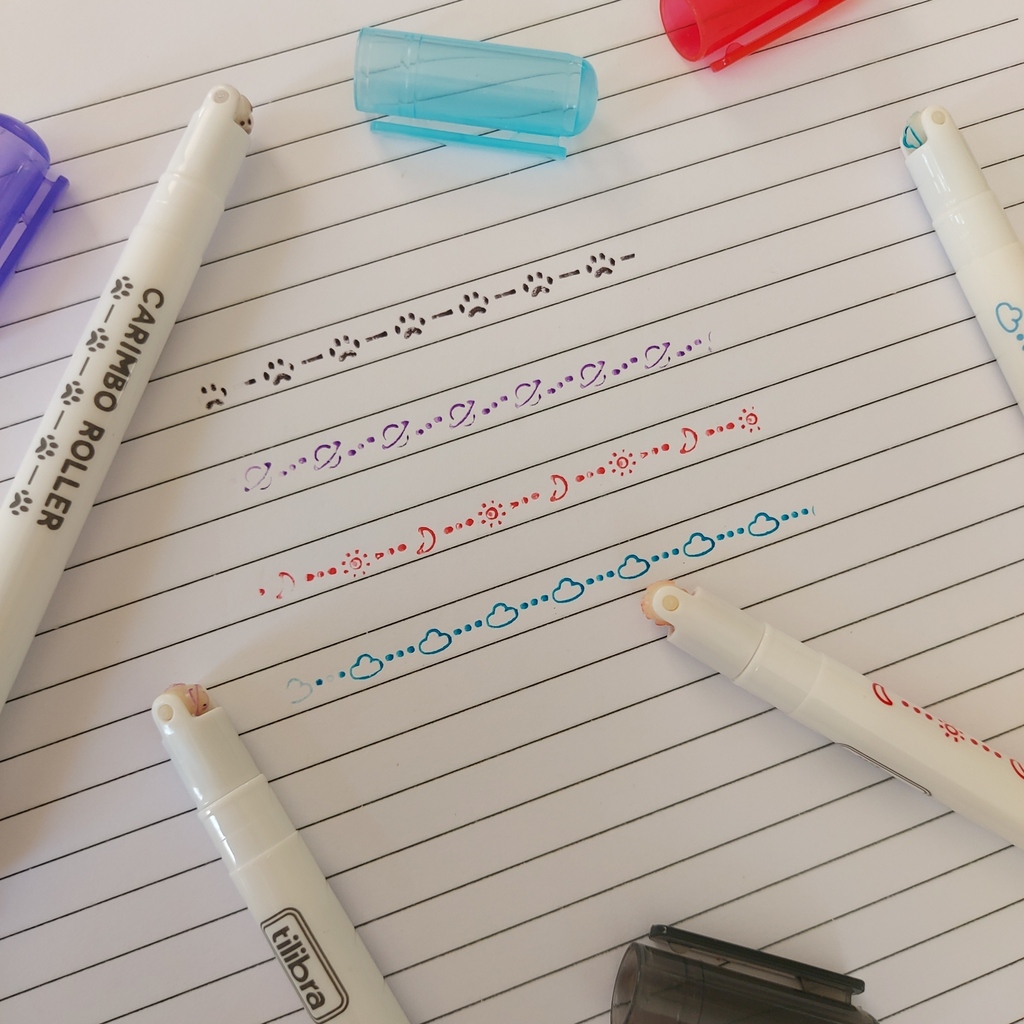 CARIMBO ROLLER
tilibra